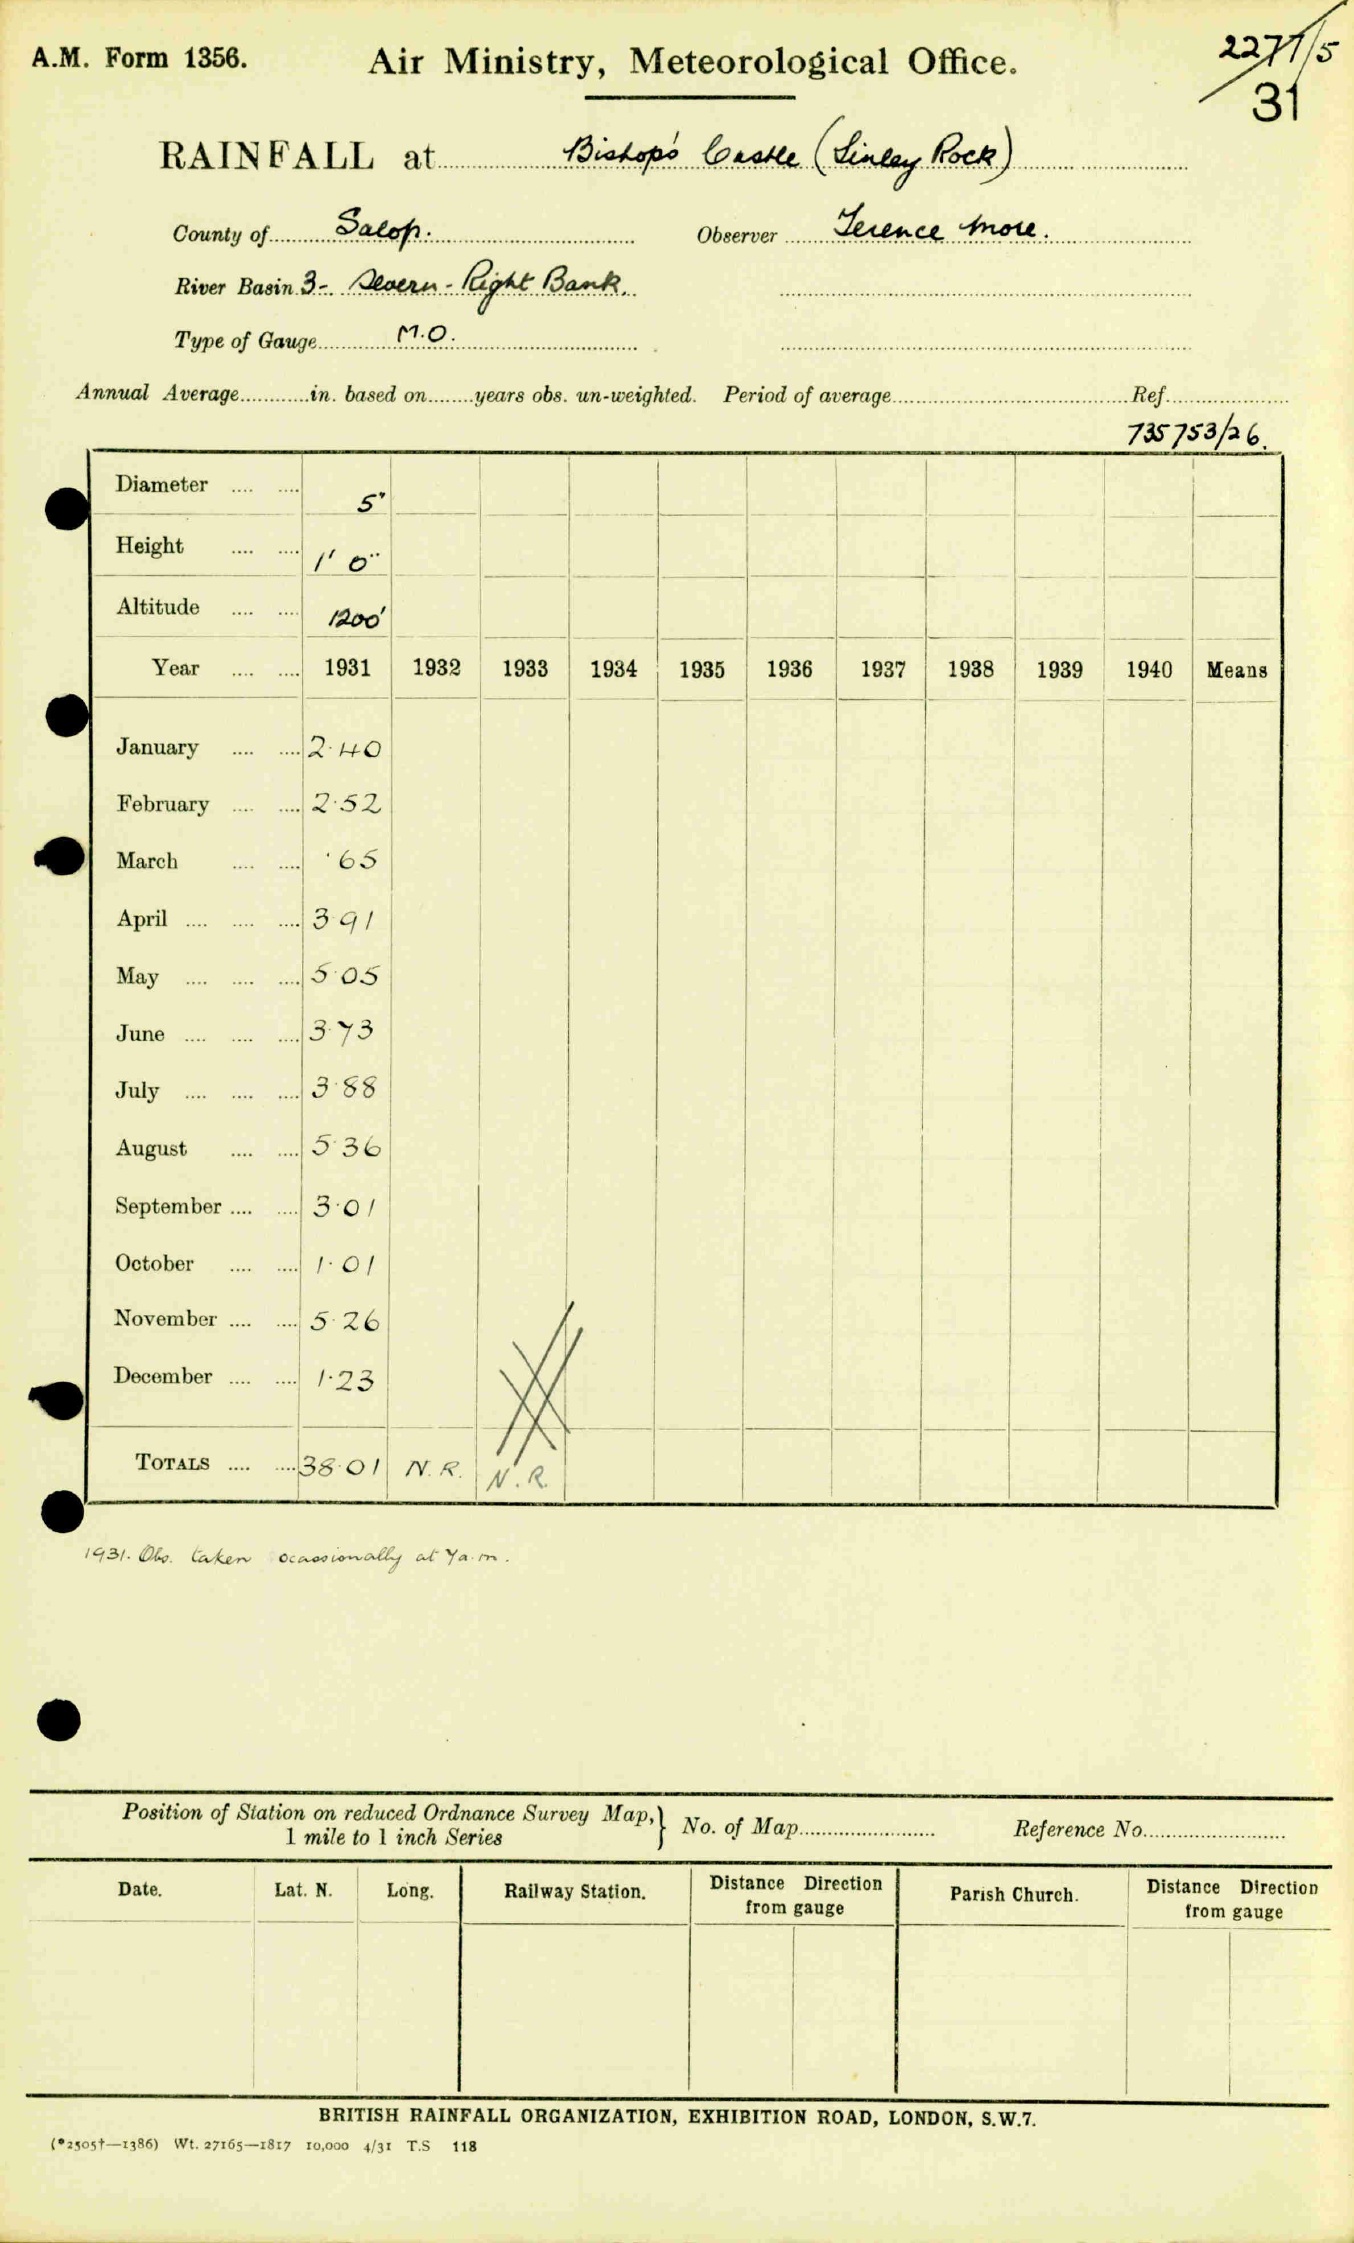 A.M. Form 1356. Air Ministry, Meteorological Office. 2277/5
31
RAINFALL at Bishop's Castle (Linley Rock)
County of Salop. Observer Terence More.
River Basin 3- Severn - Right Bank.
Type of Gauge M.O.
Annual Average in. based on years obs. un-weighted. Period of average Ref.
735753/26.
Diameter 5"
Height 1' 0"
Altitude 1200'
Year 1931 1932 1933 1934 1935 1936 1937 1938 1939 1940 Means
January 2.40
February 2.52
March .65
April 3.91
May 5.05
June 3.73
July 3.88
August 5.36
September 3.01
October 1.01
November 5.26
December 1.23
TOTALS 38.01 N.R. N.R.
1931. Obs. taken ocassionally at 7a.m.
Position of Station on reduced Ordnance Survey Map, } No. of Map Reference No.
1 mile to 1 inch Series
Date. Lat. N. Long. Railway Station. Distance Direction from gauge Parish Church. Distance Direction from gauge
BRITISH RAINFALL ORGANIZATION, EXHIBITION ROAD, LONDON, S.W.7.
(*2505†—1386) Wt. 27165—1817 10,000 4/31 T.S 118